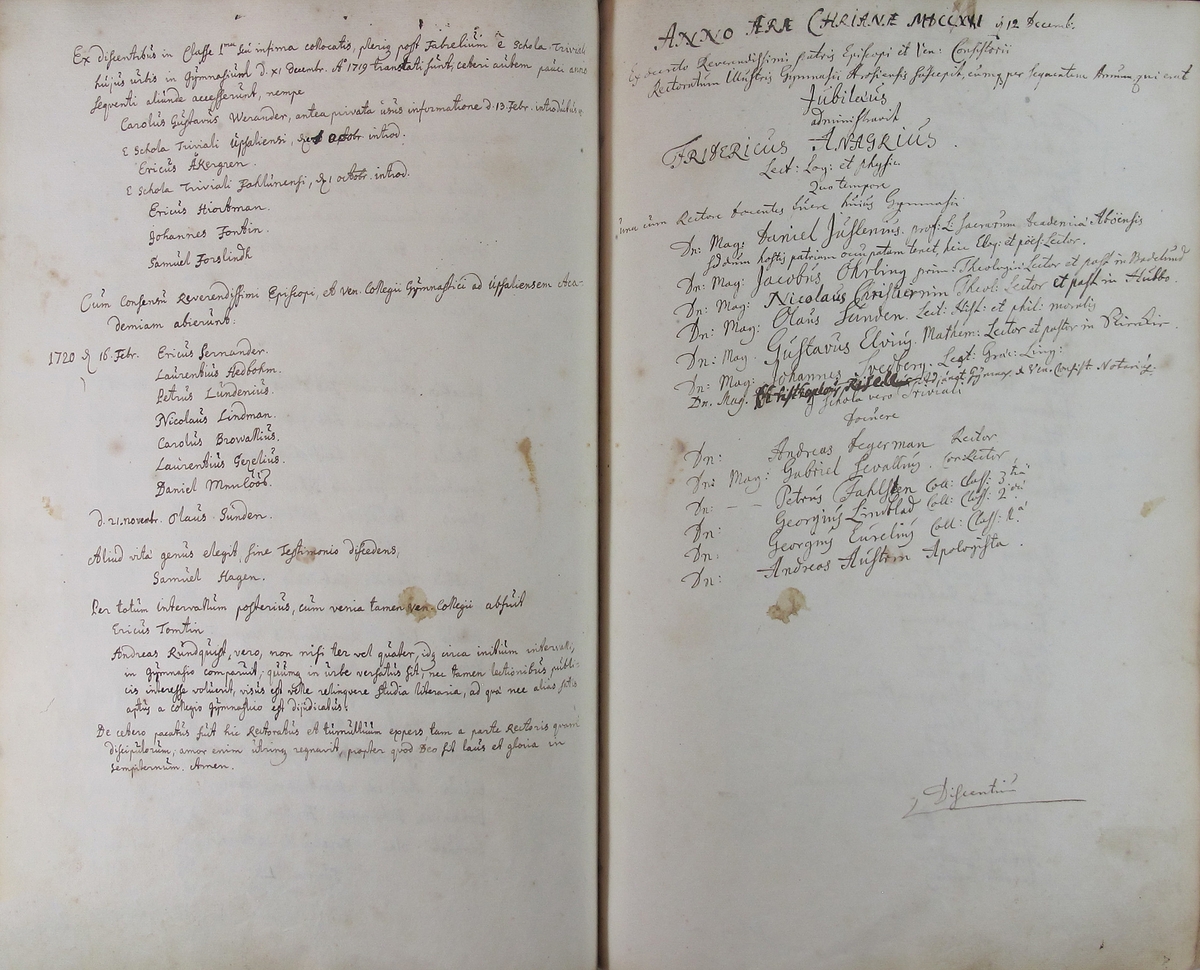 Ex discentibus in Classe 1ma seu infima collocatis, pleriq post Fabrelium è Schola Triviali
hujus urbis in Gymnasium d. XI decembr. Aº 1719 translati sunt, ceteri autem pauci anno
sequenti aliunde accesserunt, nempe
Carolus Gustavus Werander, antea privata usus informatione d. 13 Febr. introductus
E Schola Triviali Upsaliensi, octobr introd.
Ericus Åkergren.
E Schola Triviali Fahlunensi, d. 1 octobr. introd.
Ericus Hiortman.
Johannes Fontin.
Samuel Forslindh
Cum Consensu Reverendissimi Episcopi, et Ven. Collegii Gymnastici ad Upsaliensem Aca-
demiam abierunt.
1720 d. 16 Febr. Ericus Fernander.
Laurentius Hedbohm.
Petrus Lundenius.
Nicolaus Lindman.
Carolus Browallius.
Laurentius Gezelius.
Daniel
d. 21. novembr. Olaus Sundén.
Aliud vitæ genus elegit, sine Testimonio discedens,
Samuel Hagen.
Per totum intervallum posterius, cum venia tamen Ven. Collegii abfuit
Ericus Tomtin
Andreas Rundquist, vero, non nisi ter vel quater, idq circa initium intervalli,
in Gymnasio comparuit, quumq in urbe versatus sit, nec tamen lectionibus publi-
cis interesse voluerit, visus est velle relinquere studia literaria, ad quæ nec alias satis
aptus a collegio Gymnastico est dijudicatus.
De cetero pacatus fuit hic Rectoratus et tumultuum expers tam a parte Rectoris quam
discipulorum; amor enim utrinq regnavit, propter quod Deo sit laus et gloria in
sempiternum. Amen.
ANNO ÆRÆ CHRIANÆ MDCCXXI d. 12 Decemb.
Ex decreto Reverendissimi patris Episcopi et Ven: Consistorii
Rectoratum Illustris Gymnasii Arosiensis suscepit, eumq per sequentem Annum, qui erit
Jubilæus
administravit
FRIDERICUS ANAGRIUS.
Lect: Log: et physic
Quo tempore
una cum Rectore docentes fuere hujus Gymnasii
Dn: Mag: Daniel Juslenius. prof: L: Sacrarum Academiæ Aboënsis
sed dum hostis patriam occupatam tenet, heic Eloq: et poës: Lector.
Dn: Mag: Jacobus Öhrling prim: Theologiæ Lector et past in Badelund
Dn: Mag: Nicolaus Christiernin Theol: Lector et past in Hubbo.
Dn: Mag: Olaus Sundén. Lect: Hist: et phil: moralis
Dn: Mag. Gustavus Elvius. Mathem: Lector et pastor in
Dn: Mag: Johannes Svedberg. Lect: Græc: Ling:
Dn. Mag. Adjunct Gymnas. & Ven: Consist Notarius.
In Schola vero Triviali
docuere
Dn: Andreas Segerman Rector
Dn: Mag: Gabriel Sevallius. ConRector
Dn: — — Petrus Fahlsten Coll: Class: 3tiæ
Dn: Georgius Lindblad Coll: Class: 2dæ
Dn: Georgius Eurelius Coll: Class: 1æ
Dn: Andreas Austrin Apologista.
Discentiu